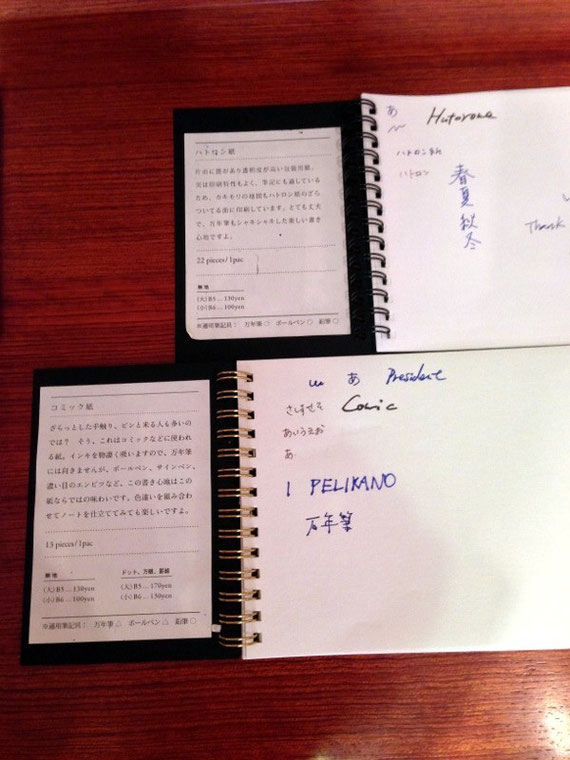 ハトロン紙
片面に艶があり透明度が高い包装用紙。
実は印刷特性もよく、筆記にも適している
ため、カキモリの地図もハトロン紙のざら
ついてる面に印刷しています。とても丈夫
で、万年筆もシャキシャキした楽しい書き
心地ですよ。
22 pieces/1pac
無地
(大)B5 ... 130yen
(小)B6 ... 100yen
※適用筆記具： 万年筆 ○ ボールペン ○ 鉛筆 ○
あ Hatorone
ハトロン紙
ハトロン
春
夏
秋
冬
Thank
コミック紙
ざらっとした手触り、ピンと来る人も多いの
では？ そう、これはコミックなどに使われ
る紙。インキを物凄く吸いますので、万年筆
には向きませんが、ボールペン、サインペン、
濃い目のエンピツなど、この書き心地はこの
紙ならではの味わいです。色違いを組み合わ
せてノートを仕立ててみても楽しいですよ。
13 pieces/1pac
無地
(大)B5 ... 130yen
(小)B6 ... 100yen
ドット、方眼、罫線
(大)B5 ... 170yen
(小)B6 ... 130yen
※適用筆記具： 万年筆 △ ボールペン △ 鉛筆 ○
あ President
さしすせそ Comic
あいうえお
あ
PELIKANO
万年筆